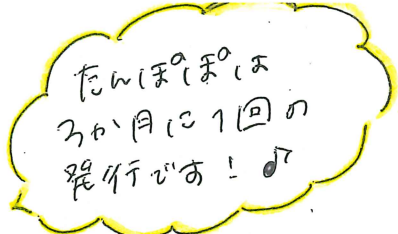 たんぽぽは
3か月に1回の
発行です！♪